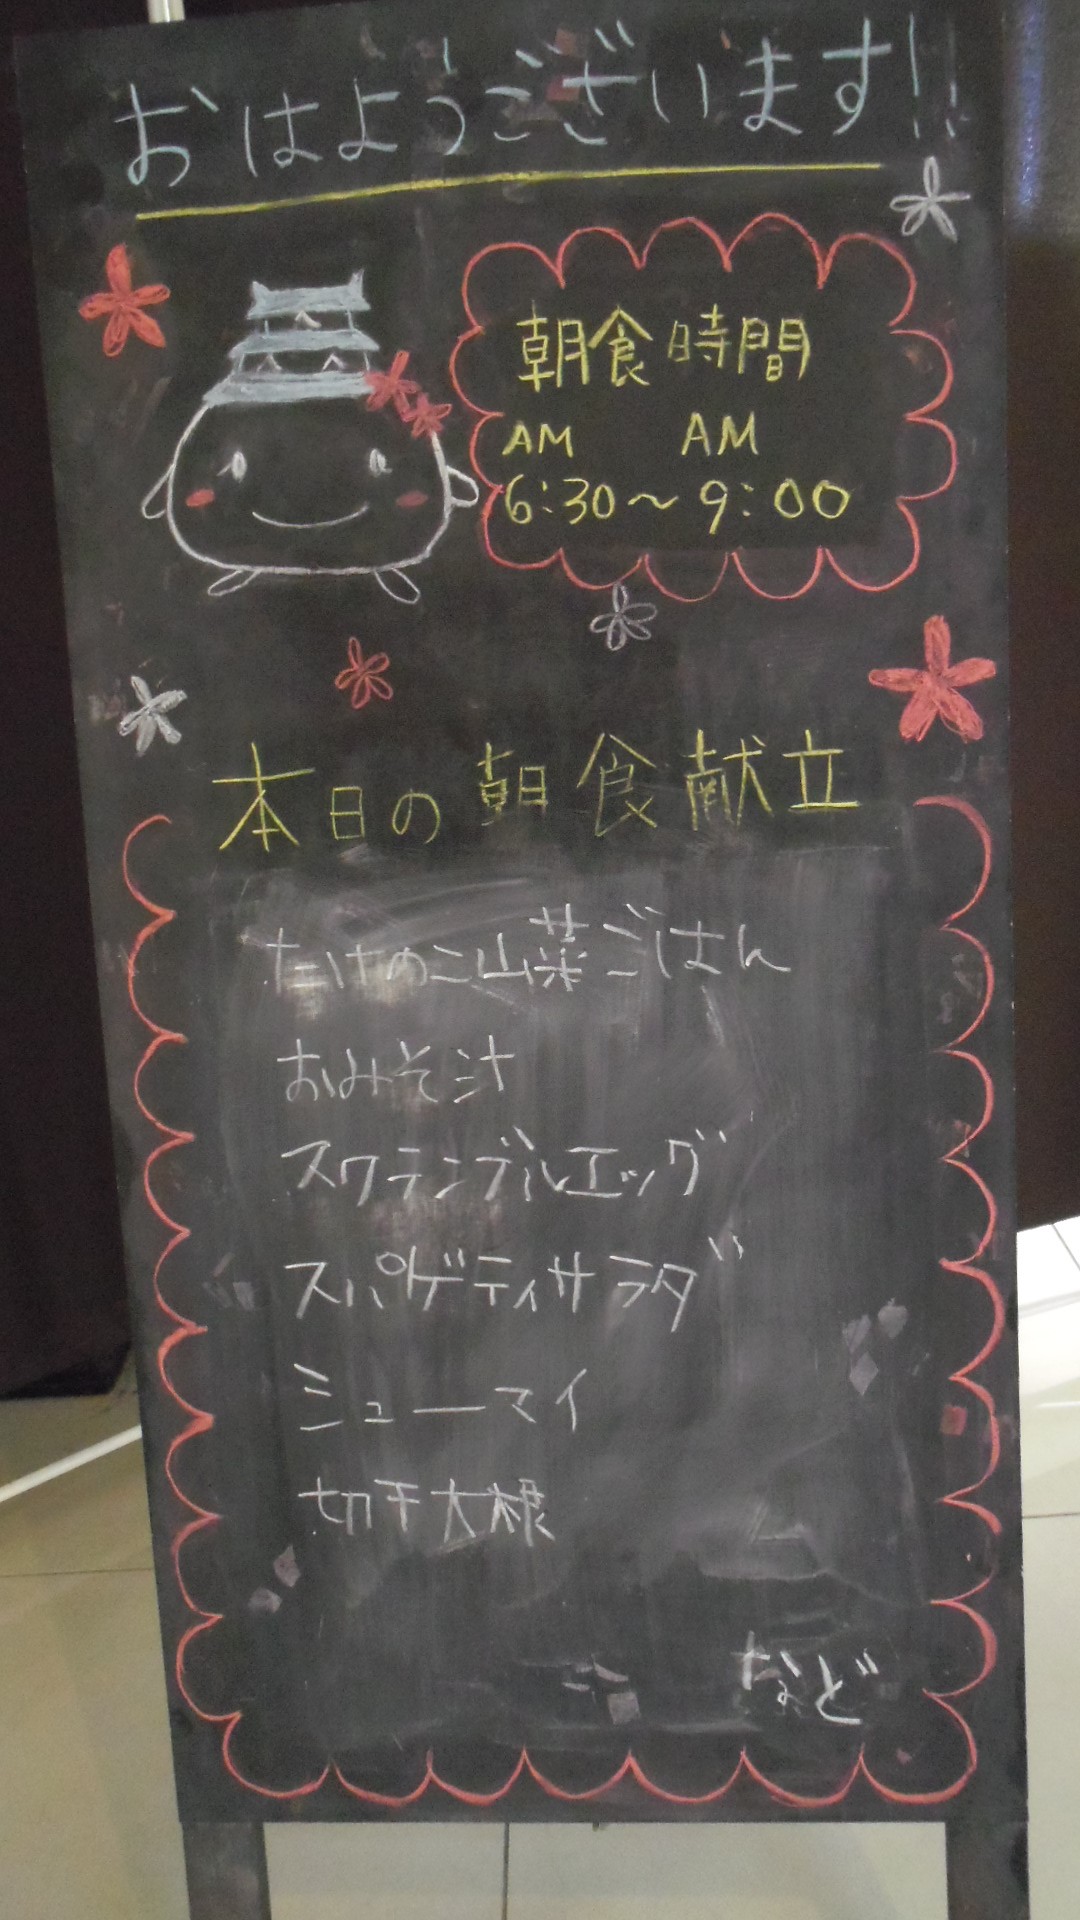 おはようございます!!
朝食時間
AM AM
6:30～9:00
本日の朝食献立
たけのこ山菜ごはん
おみそ汁
スクランブルエッグ
スパゲティサラダ
シューマイ
切干大根
など